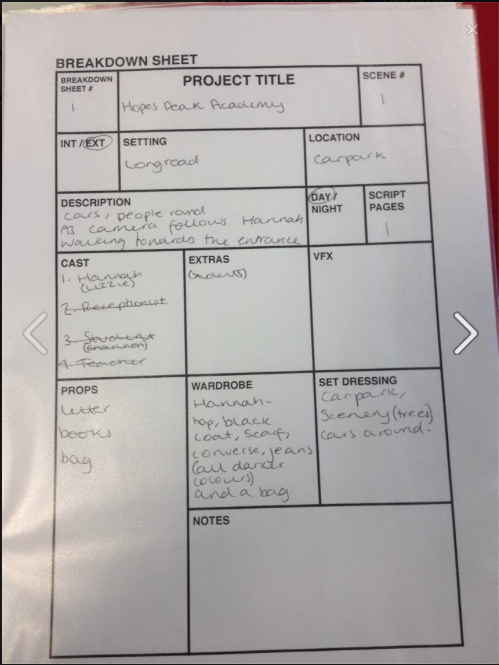 BREAKDOWN SHEET
BREAKDOWN
SHEET #
1
PROJECT TITLE
Hopes Peak Academy
SCENE #
1
INT / EXT
SETTING
Longroad
LOCATION
Carpark
DESCRIPTION
Cars, people round
As camera follows Hannah
walking towards the entrance
DAY/
NIGHT
SCRIPT
PAGES
1
CAST
1. Hannah
(Lizzie)
2. Receptionist
3. Student
(Shannon)
4. Teacher
EXTRAS
(students)
VFX
PROPS
letter
books
bag
WARDROBE
Hannah -
top, black
coat, scarf,
converse, jeans
(all darker
colours)
and a bag.
SET DRESSING
Carpark,
Scenery (trees)
cars around.
NOTES